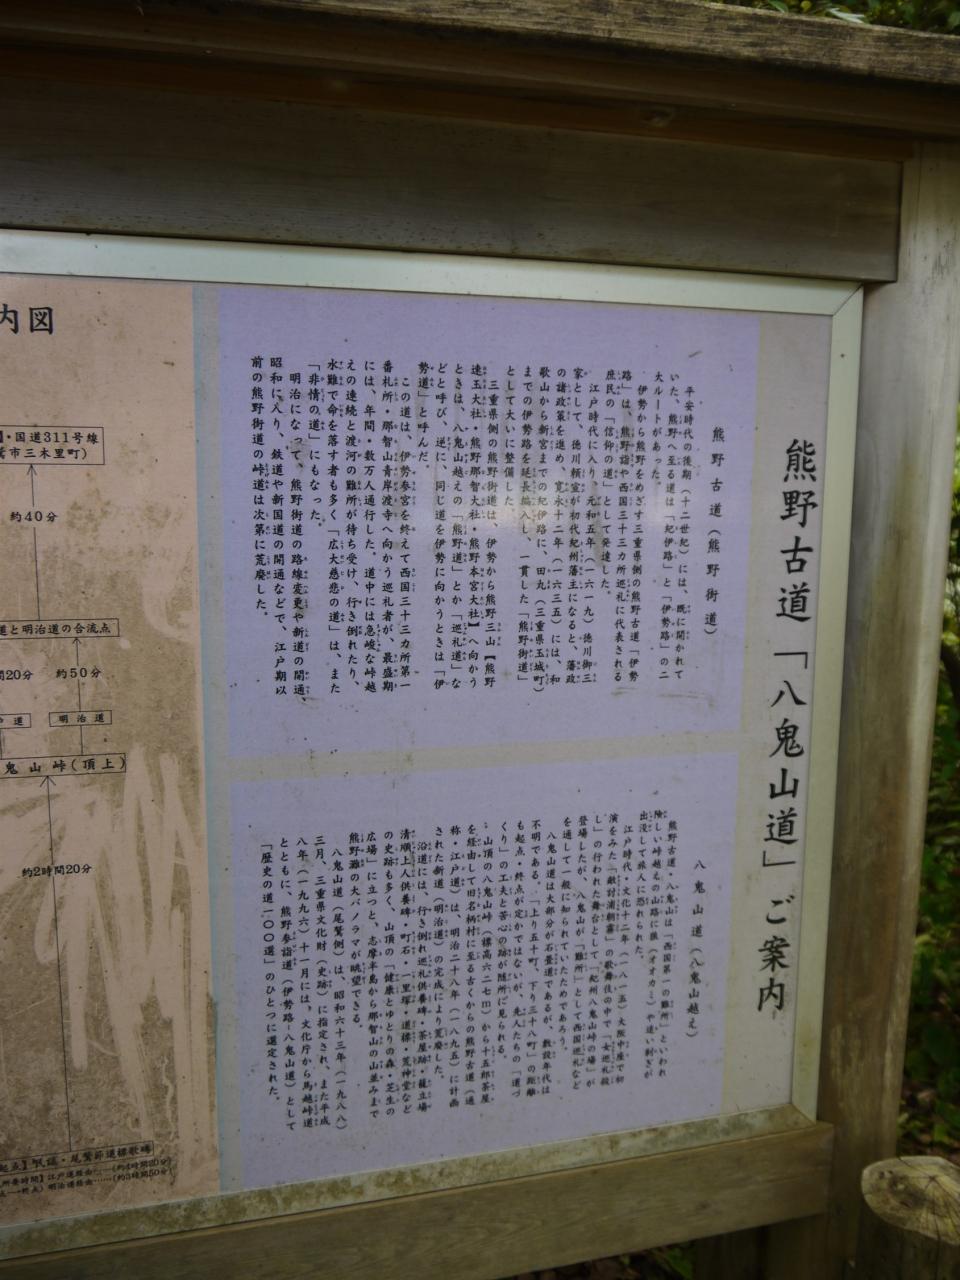 熊野古道「八鬼山道」ご案内
熊野古道（熊野街道）
平安時代の後期（十二世紀）には、既に開かれて
いた、熊野へ至る道は「紀伊路」と「伊勢路」の二
大ルートがあった。
伊勢から熊野をめざす三重県側の熊野古道「伊勢
路」は、熊野詣や西国三十三カ所巡礼に代表される
庶民の「信仰の道」として発達した。
江戸時代に入り、元和五年（一六一九）徳川御三
家として、徳川頼宣が初代紀州藩主になると、藩政
の諸政策を進め、寛永十二年（一六三五）には、和
歌山から新宮までの紀伊路に、田丸（三重県玉城町）
までの伊勢路を延長編入し、一貫した「熊野街道」
として大いに整備した。
三重県側の熊野街道は、伊勢から熊野三山【熊野
速玉大社・熊野那智大社・熊野本宮大社】へ向かう
ときは、八鬼山越えの「熊野道」とか「巡礼道」な
どと呼び、逆に、同じ道を伊勢に向かうときは「伊
勢道」と呼んだ。
この道は、伊勢参宮を終えて西国三十三カ所第一
番札所・那智山青岸渡寺へ向かう巡礼者が、最盛期
には、年間・数万人通行した。道中には急峻な峠越
えの連続と渡河の難所が待ち受け、行き倒れたり、
水難で命を落す者も多く「広大慈悲の道」は、また
「非情の道」にもなった。
明治になって、熊野街道の路線変更や新道の開通、
昭和に入り、鉄道や新国道の開通などで、江戸期以
前の熊野街道の峠道は次第に荒廃した。
八鬼山道（八鬼山越え）
熊野古道・八鬼山は「西国第一の難所」といわれ
険しい峠越えの山路に狼（オオカミ）や追い剥ぎが
出没して旅人に恐れられた。
江戸時代・文化十二年（一八一五）大阪中座で初
演をみた「敵討浦朝霧」の歌舞伎の中で「女巡礼殺
し」の行われた舞台として「紀州八鬼山峠の場」が
登場したが、八鬼山が「難所」として西国巡礼など
を通して一般に知られていたためであろう。
八鬼山道は大部分が石畳道であるが、敷設年代は
不明である。「上り五十町、下り三十八町」の距離
も起点・終点が定かではないが、先人たちの「道づ
くり」の工夫と苦心の跡が随所に見られる。
山頂の八鬼山峠（標高六二七m）から十五郎茶屋
を経由して旧名柄村に至る古くからの熊野古道（通
称・江戸道）は、明治二十八年（一八九五）に計画
された新道（明治道）の完成により荒廃した。
沿道には、行き倒れ巡礼供養碑・茶屋跡・籠立場
清順上人供養碑・町石・一里塚・道標・荒神堂など
の史跡も多く、山頂の「健康とゆとりの森・芝生の
広場」に立つと、志摩半島から那智山の山並みまで
熊野灘の大パノラマが眺望できる。
八鬼山道（尾鷲側）は、昭和六十三年（一九八八）
三月、三重県文化財（史跡）に指定され、また平成
八年（一九九六）十一月には、文化庁から馬越峠道
とともに、熊野参詣道（伊勢路-八鬼山道）として
「歴史の道一〇〇選」のひとつに選定された。
内図
・国道311号線
鷲市三木里町）
約40分
道と明治道の合流点
間20分 約50分
道 明治道
鬼山峠（頂上）
約2時間20分
起点】
尾鷲節道標歌碑
所要時間】江戸道経由……（約4時間20分）
明治道経由……（約3時間50分）